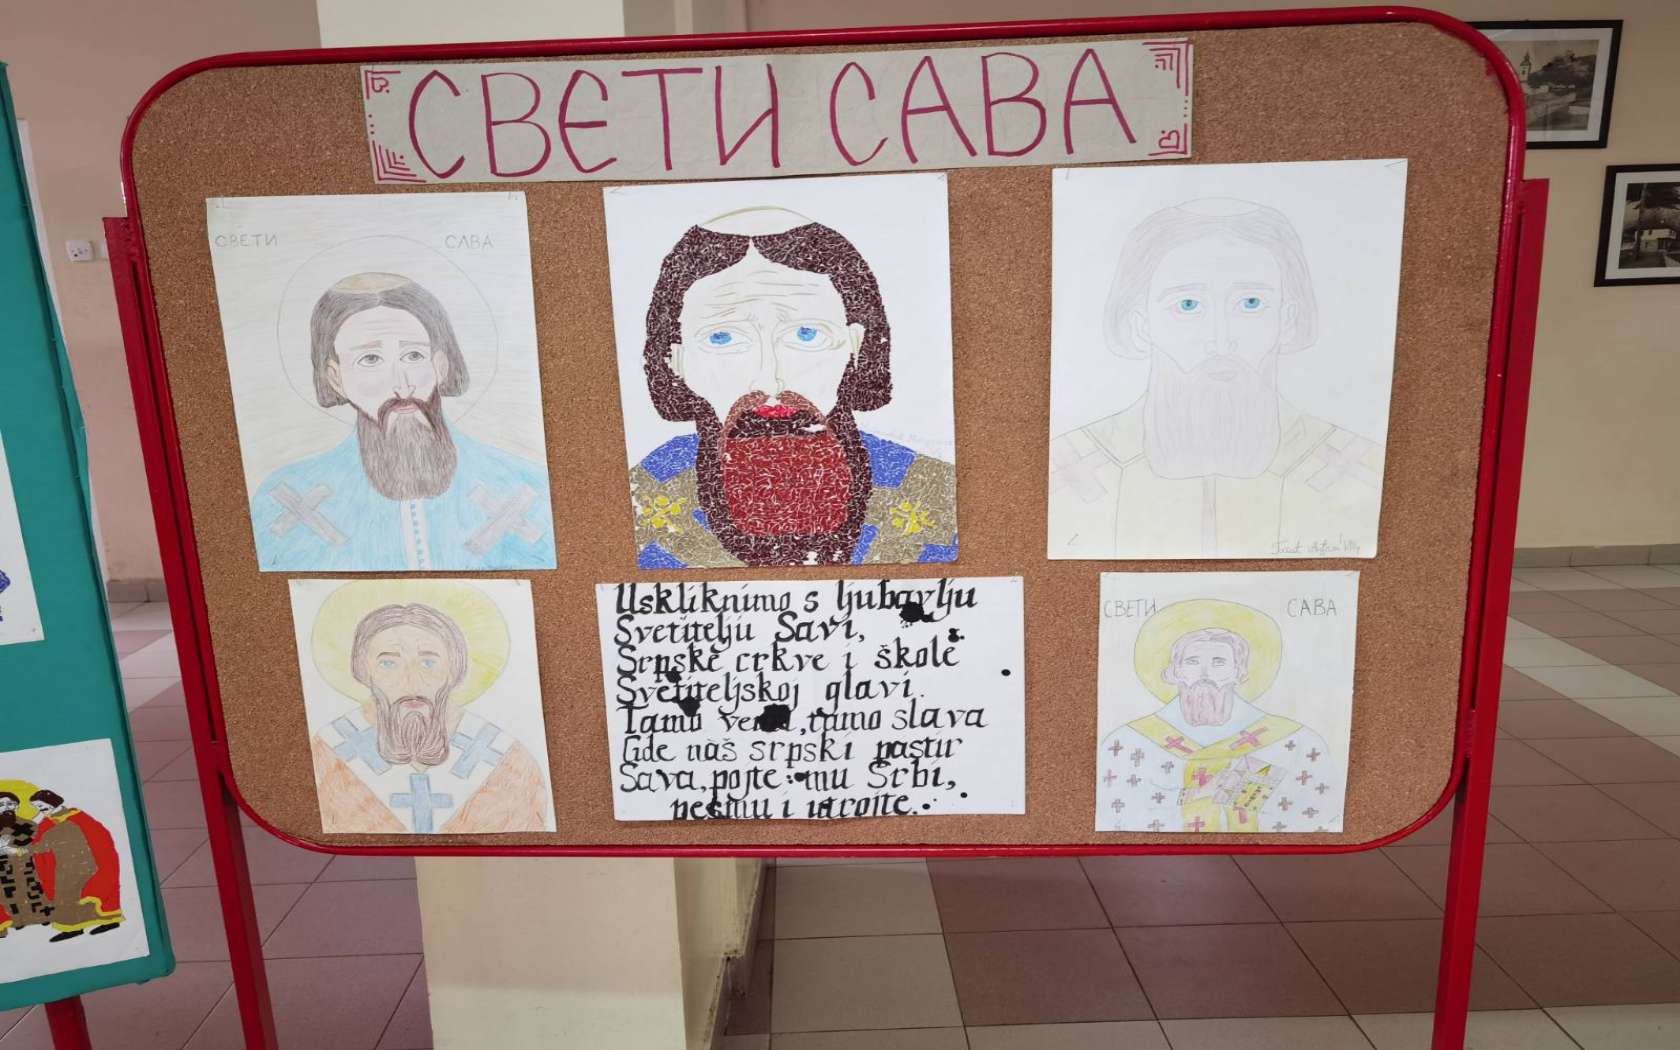 СВЕТИ САВА
СВЕТИ САВА
Uskliknimo s ljubavlju
Svetitelju Savi,
Srpske crkve i škole
Svetiteljskoj glavi.
Tamo venci, tamo slava
Gde naš srpski pastir
Sava, pojte mu Srbi,
pesmu i utrojte.
СВЕТИ САВА